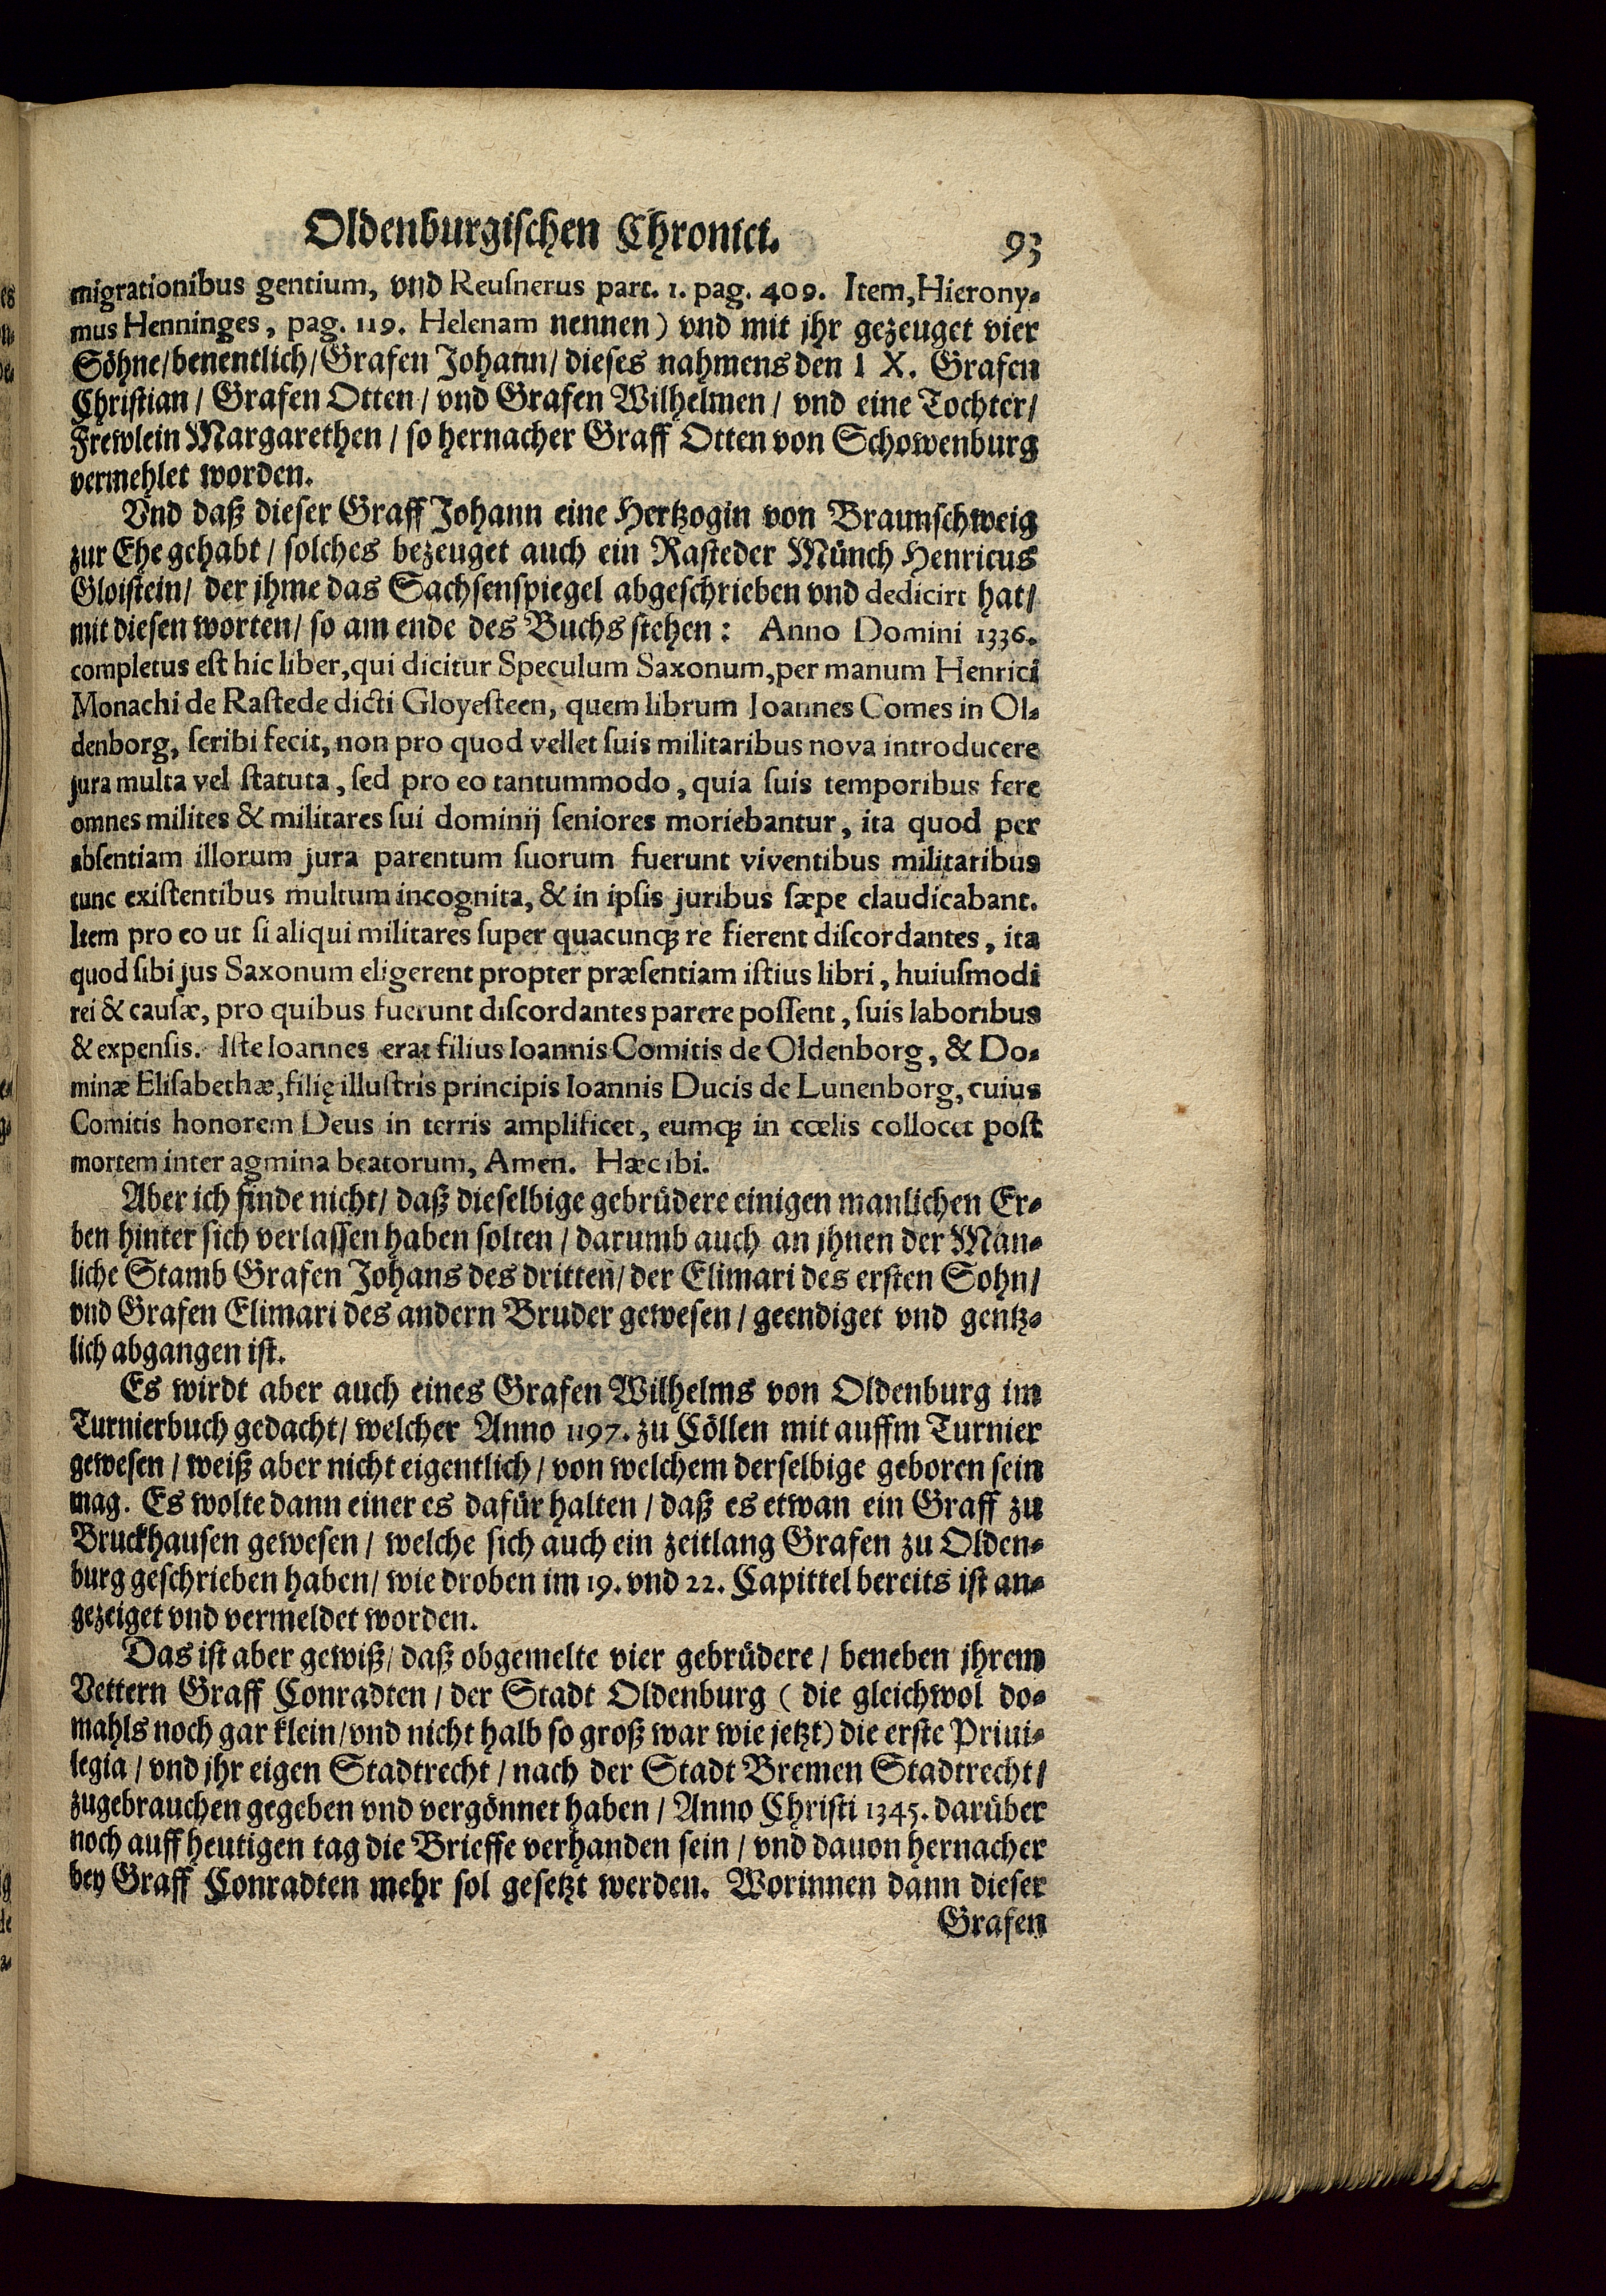 Oldenburgischen Chronici. 93
migrationibus gentium, vnd Reusnerus part. 1. pag. 409. Item, Hierony-
mus Henninges, pag. 119. Helenam nennen) vnd mit jhr gezeuget vier
Söhne/benentlich/Grafen Johann/ dieses nahmens den IX. Grafen
Christian/ Grafen Otten/ vnd Grafen Wilhelmen/ vnd eine Tochter/
Frewlein Margarethen/ so hernacher Graff Otten von Schowenburg
vermehlet worden.
Vnd daß dieser Graff Johann eine Hertzogin von Braunschweig
zur Ehe gehabt/ solches bezeuget auch ein Rasteder Münch Henricus
Gloistein/ der jhme das Sachsenspiegel abgeschrieben vnd dedicirt hat/
mit diesen worten/ so am ende des Buchs stehen: Anno Domini 1336.
completus est hic liber, qui dicitur Speculum Saxonum, per manum Henrici
Monachi de Rastede dicti Gloyesteen, quem librum Ioannes Comes in Ol-
denborg, scribi fecit, non pro quod vellet suis militaribus nova introducere
jura multa vel statuta, sed pro eo tantummodo, quia suis temporibus fere
omnes milites & militares sui dominij seniores moriebantur, ita quod per
absentiam illorum jura parentum suorum fuerunt viventibus militaribus
tunc existentibus multum incognita, & in ipsis juribus sæpe claudicabant.
Item pro eo ut si aliqui militares super quacunq; re fierent discordantes, ita
quod sibi jus Saxonum eligerent propter præsentiam istius libri, huiusmodi
rei & causæ, pro quibus fuerunt discordantes parere possent, suis laboribus
& expensis. Iste Ioannes erat filius Ioannis Comitis de Oldenborg, & Do-
minæ Elisabethæ, filię illustris principis Ioannis Ducis de Lunenborg, cuius
Comitis honorem Deus in terris amplificet, eumq; in cœlis collocet post
mortem inter agmina beatorum, Amen. Hæc ibi.
Aber ich finde nicht/ daß dieselbige gebrüdere einigen manlichen Er-
ben hinter sich verlassen haben solten/ darumb auch an jhnen der Män-
liche Stamb Grafen Johans des dritten/ der Elimari des ersten Sohn/
vnd Grafen Elimari des andern Bruder gewesen/ geendiget vnd gentz-
lich abgangen ist.
Es wirdt aber auch eines Grafen Wilhelms von Oldenburg im
Turnierbuch gedacht/ welcher Anno 1197. zu Cöllen mit auffm Turnier
gewesen/ weiß aber nicht eigentlich/ von welchem derselbige geboren sein
mag. Es wolte dann einer es dafür halten/ daß es etwan ein Graff zu
Bruckhausen gewesen/ welche sich auch ein zeitlang Grafen zu Olden-
burg geschrieben haben/ wie droben im 19. vnd 22. Capittel bereits ist an-
gezeiget vnd vermeldet worden.
Das ist aber gewiß/ daß obgemelte vier gebrüdere/ beneben jhrem
Vettern Graff Conradten/ der Stadt Oldenburg (die gleichwol do-
mahls noch gar klein/vnd nicht halb so groß war wie jetzt) die erste Priui-
legia/ vnd jhr eigen Stadtrecht/ nach der Stadt Bremen Stadtrecht/
zugebrauchen gegeben vnd vergönnet haben/ Anno Christi 1345. darüber
noch auff heutigen tag die Brieffe verhanden sein/ vnd dauon hernacher
bey Graff Conradten mehr sol gesetzt werden. Worinnen dann dieser
Grafen